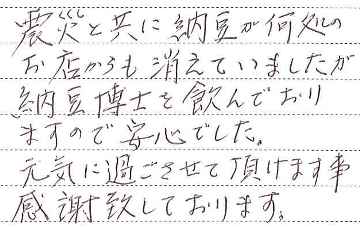 震災と共に納豆が何処の
お店からも消えていましたが
納豆博士を飲んでおり
ますので安心でした。
元気に過ごさせて頂けます事
感謝致しております。